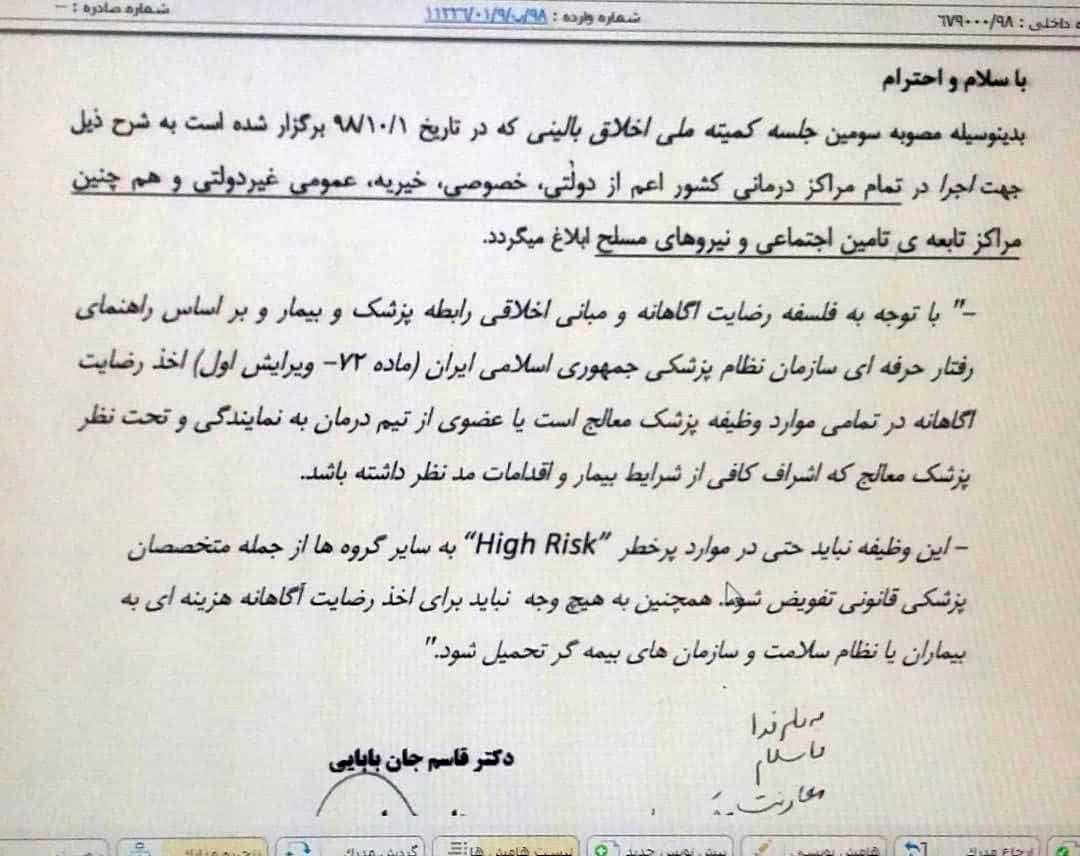 ه داخلی : ۶۷۹۰۰۰/۹۸ شماره وارده : ۹۸/ب/۹/۰۱/۱۱۲۳۶ شماره صادره : --
با سلام و احترام
بدینوسیله مصوبه سومین جلسه کمیته ملی اخلاق بالینی که در تاریخ ۹۸/۱۰/۱ برگزار شده است به شرح ذیل
جهت اجرا در تمام مراکز درمانی کشور اعم از دولتی، خصوصی، خیریه، عمومی غیردولتی و هم چنین
مراکز تابعه ی تامین اجتماعی و نیروهای مسلح ابلاغ میگردد.
-" با توجه به فلسفه رضایت اگاهانه و مبانی اخلاقی رابطه پزشک و بیمار و بر اساس راهنمای
رفتار حرفه ای سازمان نظام پزشکی جمهوری اسلامی ایران (ماده ۷۲- ویرایش اول) اخذ رضایت
اگاهانه در تمامی موارد وظیفه پزشک معالج است یا عضوی از تیم درمان به نمایندگی و تحت نظر
پزشک معالج که اشراف کافی از شرایط بیمار و اقدامات مد نظر داشته باشد.
- این وظیفه نباید حتی در موارد پرخطر "High Risk" به سایر گروه ها از جمله متخصصان
پزشکی قانونی تفویض شود. همچنین به هیچ وجه نباید برای اخذ رضایت آگاهانه هزینه ای به
بیماران یا نظام سلامت و سازمان های بیمه گر تحمیل شود."
دکتر قاسم جان بابایی
باسلام
معاونت
ارجاع مدرک هامش نویسی پیش نویس جدید لیست هامش ها گردش مدرک